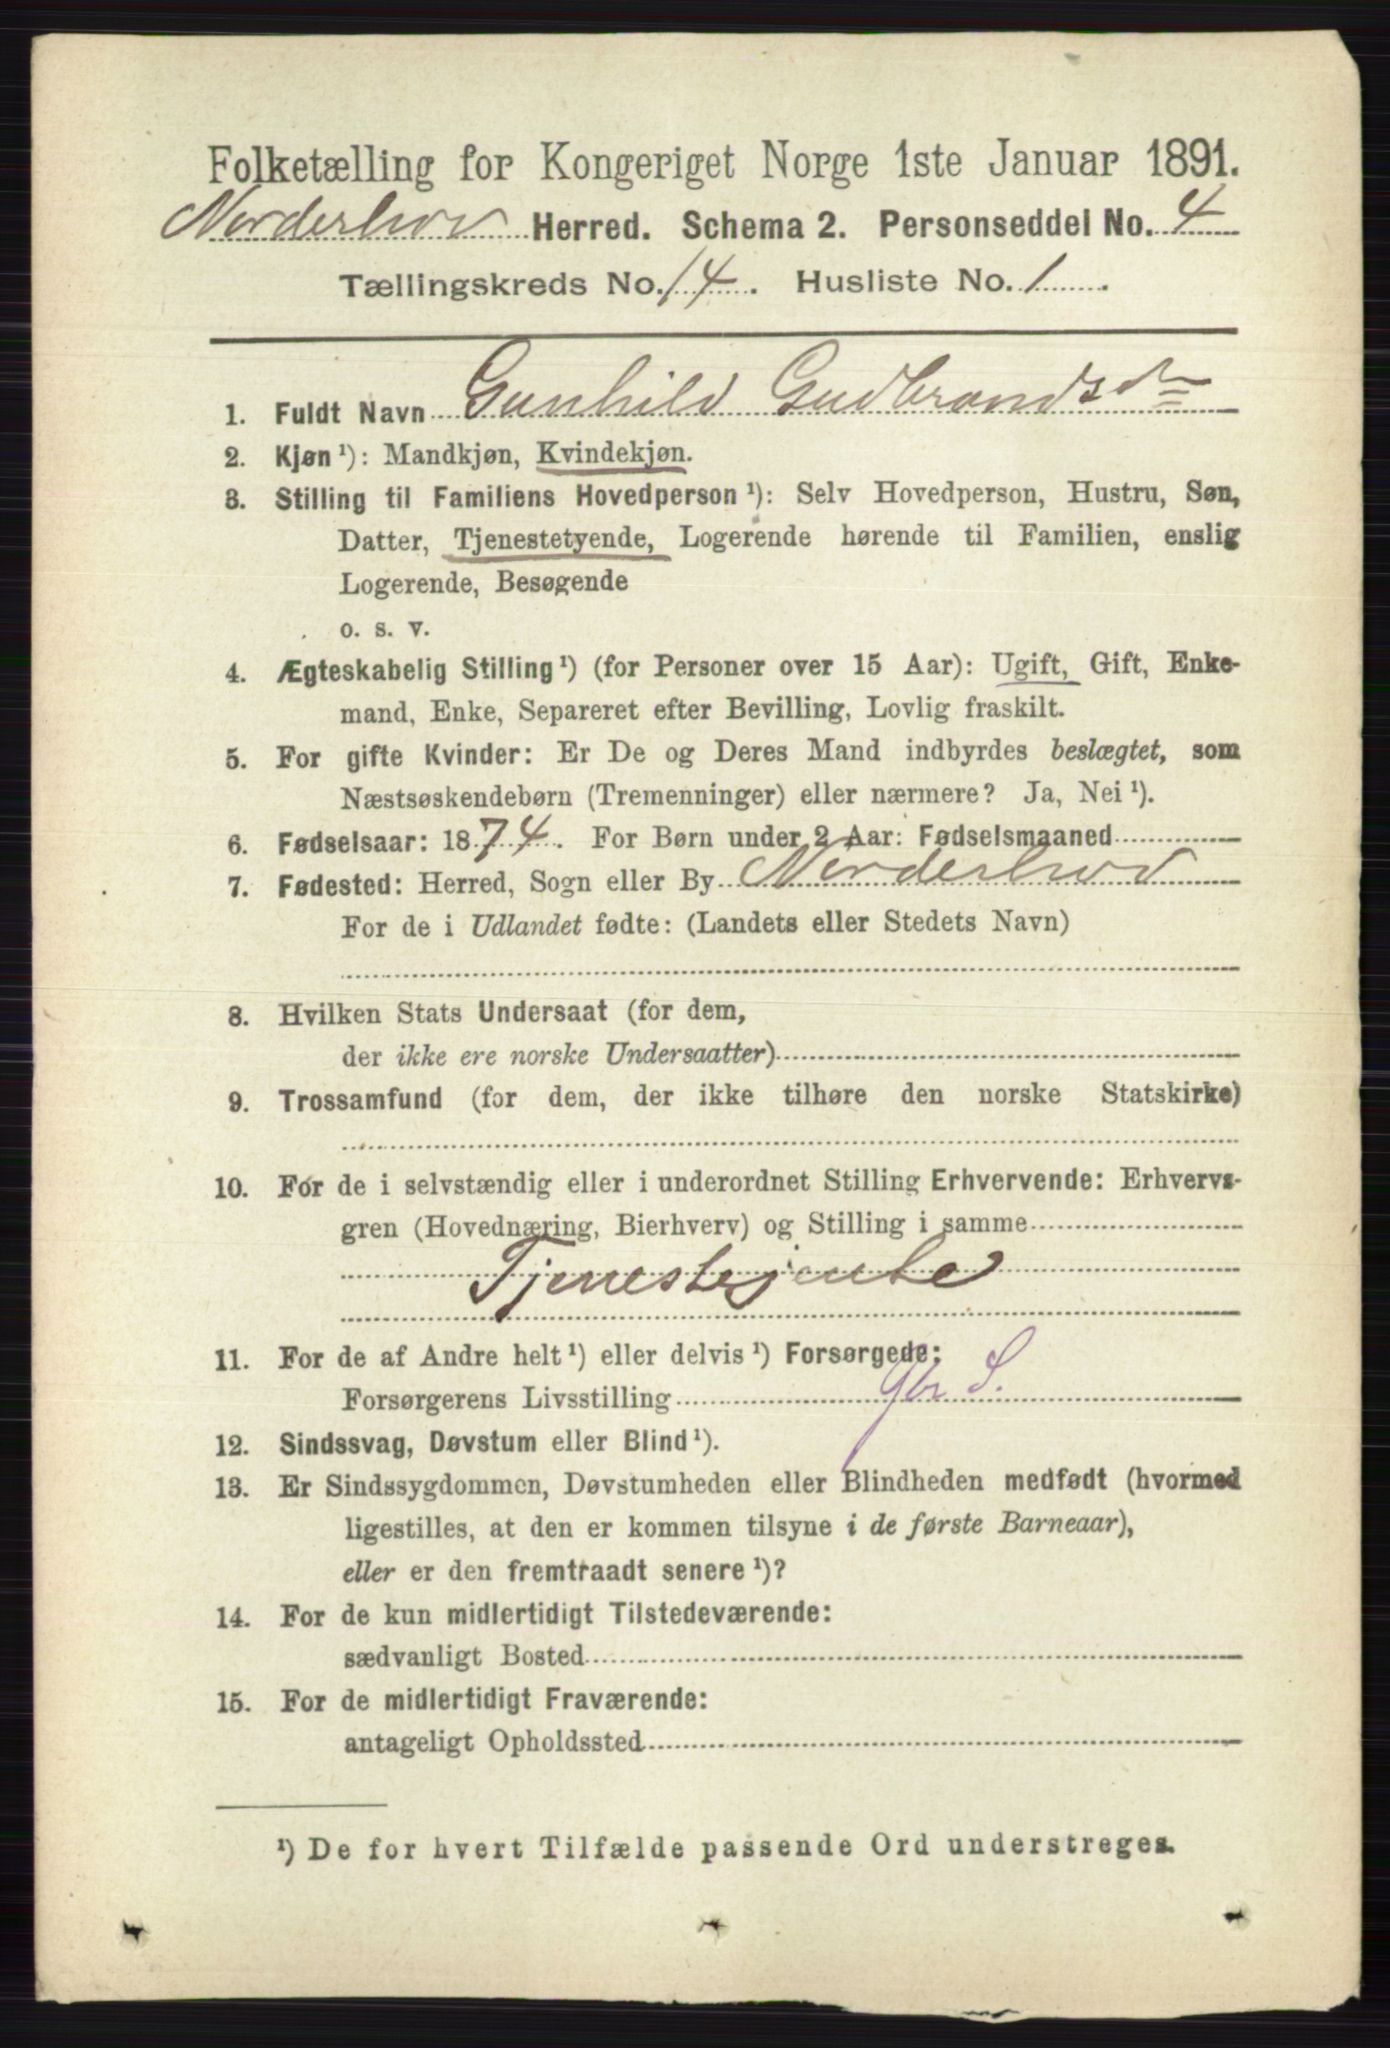 Folketælling for Kongeriget Norge 1ste Januar 1891.
Norderhov Herred. Schema 2. Personseddel No. 4
Tællingskreds No. 14. Husliste No. 1.
1. Fuldt Navn Gunhild Gudbrandsdr
2. Kjøn ¹): Mandkjøn, Kvindekjøn.
3. Stilling til Familiens Hovedperson ¹): Selv Hovedperson, Hustru, Søn,
Datter, Tjenestetyende, Logerende hørende til Familien, enslig
Logerende, Besøgende
o. s. v.
4. Ægteskabelig Stilling ¹) (for Personer over 15 Aar): Ugift, Gift, Enke-
mand, Enke, Separeret efter Bevilling, Lovlig fraskilt.
5. For gifte Kvinder: Er De og Deres Mand indbyrdes beslægtet, som
Næstsøskendebørn (Tremenninger) eller nærmere? Ja, Nei ¹).
6. Fødselsaar: 1874. For Børn under 2 Aar: Fødselsmaaned
7. Fødested: Herred, Sogn eller By Norderhov
For de i Udlandet fødte: (Landets eller Stedets Navn)
8. Hvilken Stats Undersaat (for dem,
der ikke ere norske Undersaatter)
9. Trossamfund (for dem, der ikke tilhøre den norske Statskirke)
10. For de i selvstændig eller i underordnet Stilling Erhvervende: Erhvervs-
gren (Hovednæring, Bierhverv) og Stilling i samme
Tjenestejente
11. For de af Andre helt ¹) eller delvis ¹) Forsørgede:
Forsørgerens Livsstilling Gbr S.
12. Sindssvag, Døvstum eller Blind ¹).
13. Er Sindssygdommen, Døvstumheden eller Blindheden medfødt (hvormed
ligestilles, at den er kommen tilsyne i de første Barneaar),
eller er den fremtraadt senere ¹)?
14. For de kun midlertidigt Tilstedeværende:
sædvanligt Bosted
15. For de midlertidigt Fraværende:
antageligt Opholdssted
¹) De for hvert Tilfælde passende Ord understreges.